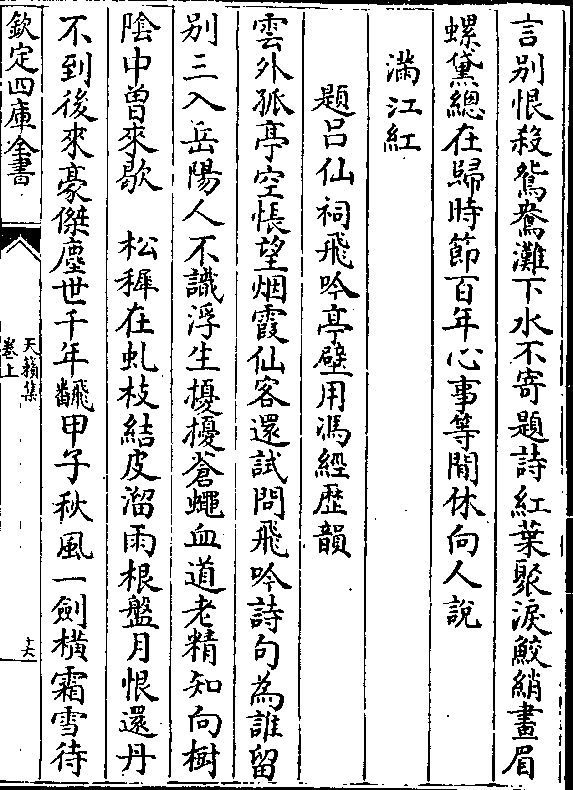 言别恨殺鴛鴦灘下水不寄題詩紅葉聚淚鮫綃畫眉
螺黛總在歸時節百年心事等閒休向人說
滿江紅
題吕仙祠飛吟亭壁用馮經歴韻
雲外孤亭空悵望烟霞仙客還試問飛吟詩句為誰留
别三入岳陽人不識浮生擾擾蒼蠅血道老精知向樹
陰中曽來歇　松穉在虬枝結皮溜雨根盤月恨還丹
不到後來豪傑塵世千年飜甲子秋風一劍横霜雪待
欽定四庫全書
天籟集
卷上
十六